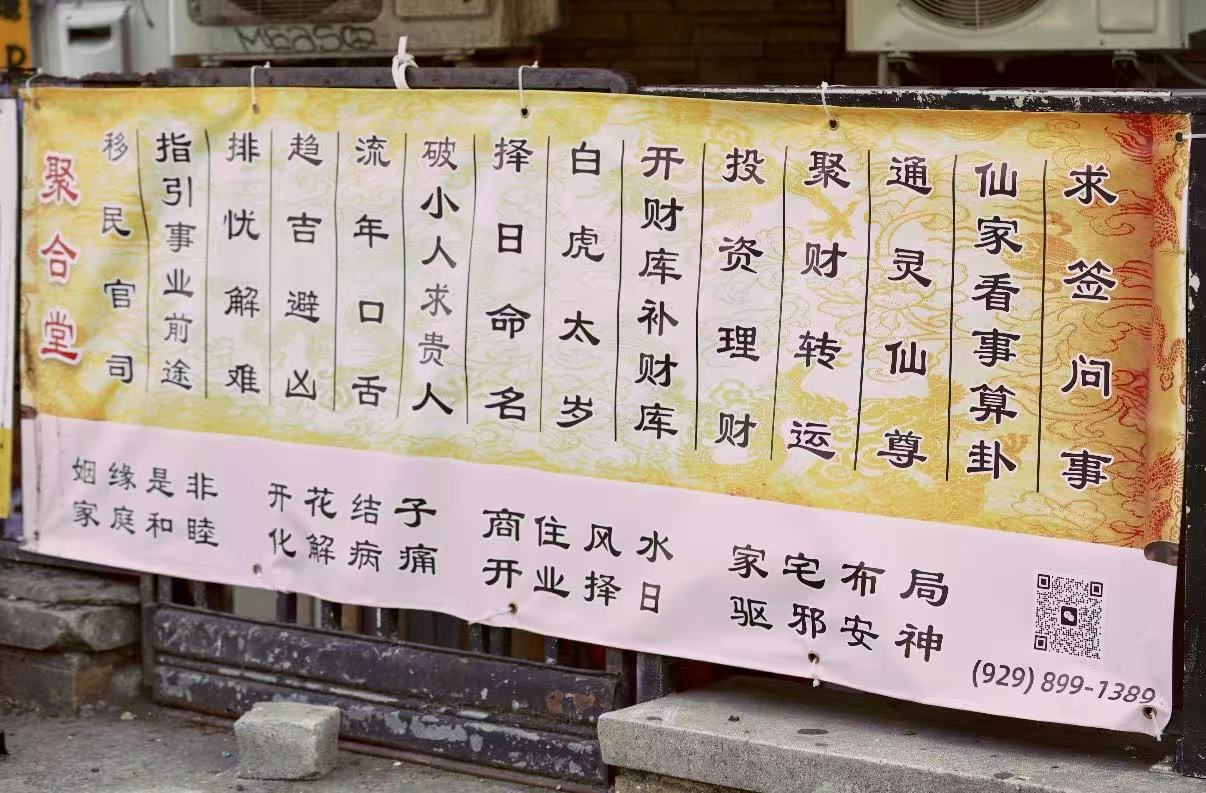 求签问事
仙家看事算卦
通灵仙尊
聚财转运
投资理财
开财库补财库
白虎太岁
择日命名
破小人求贵人
流年口舌
趋吉避凶
排忧解难
指引事业前途
移民官司
聚合堂
姻缘是非
家庭和睦
开花结子
化解病痛
商住风水
开业择日
家宅布局
驱邪安神
(929) 899-1389